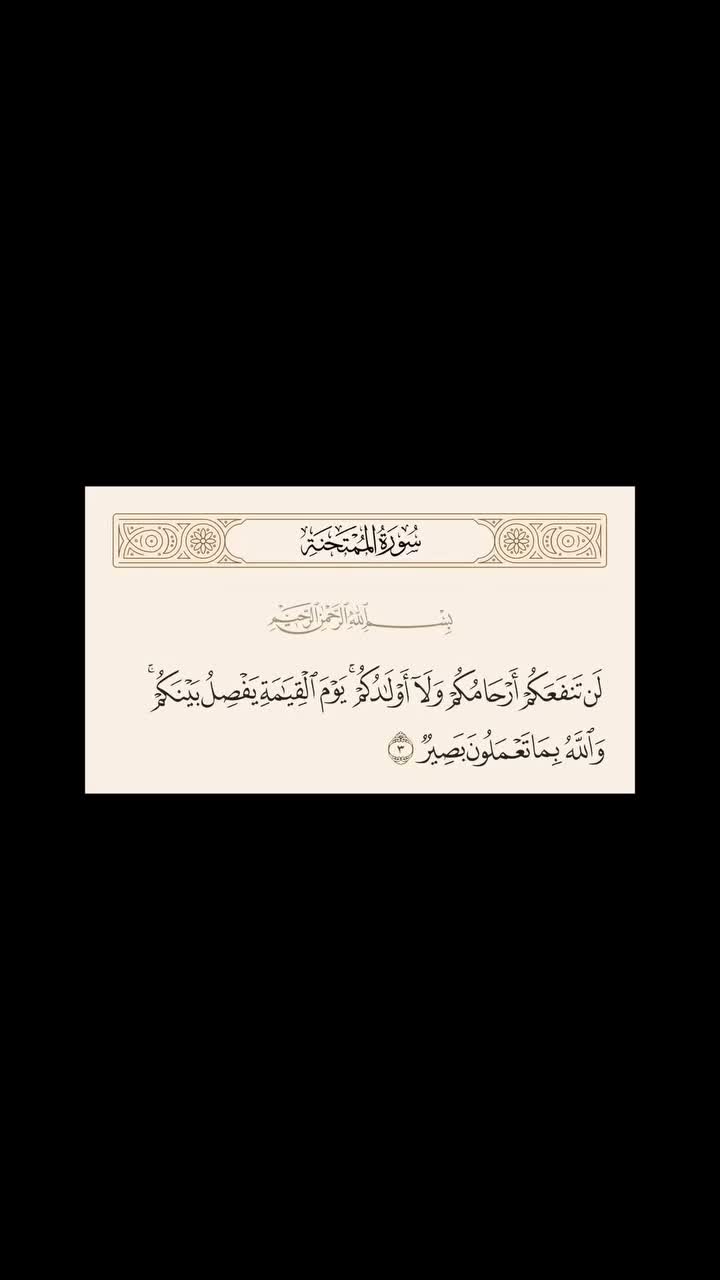 سُورَةُ الْمُمْتَحَنَةِ
بِسْمِ ٱللَّهِ ٱلرَّحْمَٰنِ ٱلرَّحِيمِ
لَن تَنفَعَكُمْ أَرْحَامُكُمْ وَلَآ أَوْلَٰدُكُمْ ۚ يَوْمَ ٱلْقِيَٰمَةِ يَفْصِلُ بَيْنَكُمْ ۚ
وَٱللَّهُ بِمَا تَعْمَلُونَ بَصِيرٌ ٣